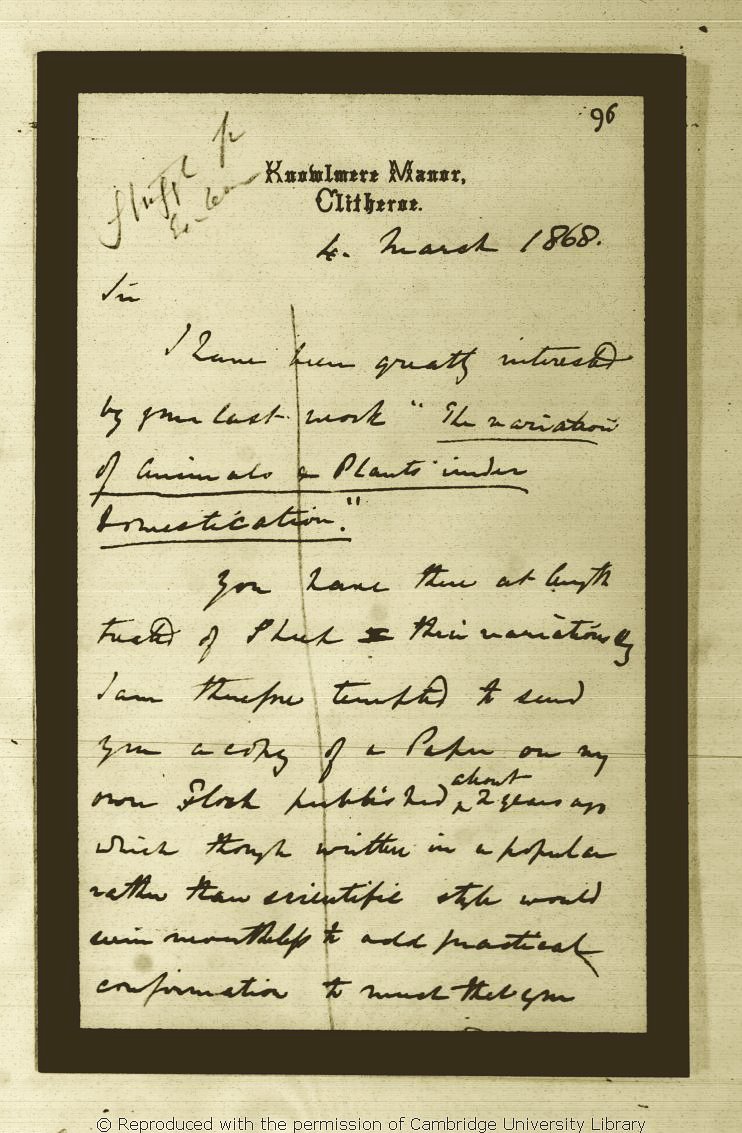 96
Knowlmere Manor,
Clitheroe.
4. March 1868.
Sir
I have been greatly interested
by your last work "The variation
of Animals & Plants under
Domestication."
You have there at length
treated of Sheep & their variations &
I am therefore tempted to send
you a copy of a Paper on my
own Flock published about 2 years ago
which though written in a popular
rather than scientific style would
seem nevertheless to add practical
confirmation to much that you
© Reproduced with the permission of Cambridge University Library